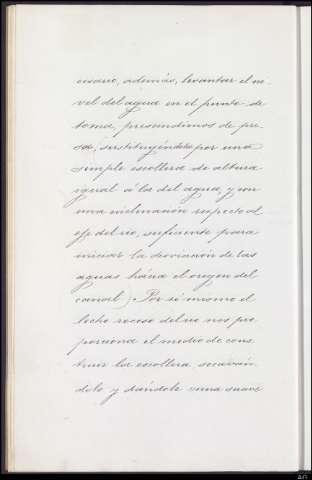 cesario, además, levantar el ni-
vel del agua en el punto de
toma, prescindimos de pre-
sa, sustituyéndola por una
simple escollera de altura
igual a la del agua, y con
una inclinación respecto al
eje del rio, suficiente para
iniciar la desviación de las
aguas hácia el origen del
canal) Por si mismo el
lecho rocoso del rio nos pro
porciona el medio de cons
truir la escollera, escaván
dolo y dándole una suave